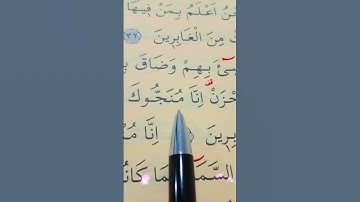 حْنُ اَعْلَمُ بِمَنْ فِيهَا
مِنَ الْغَابِرِينَ ﴿٣٢﴾
ىٓءَ بِهِمْ وَضَاقَ بِ
حْزَنْ اِنَّا مُنَجُّوكَ
بِرِينَ اِنَّا مُنْ
السَّمَٓا مَا كَانُو